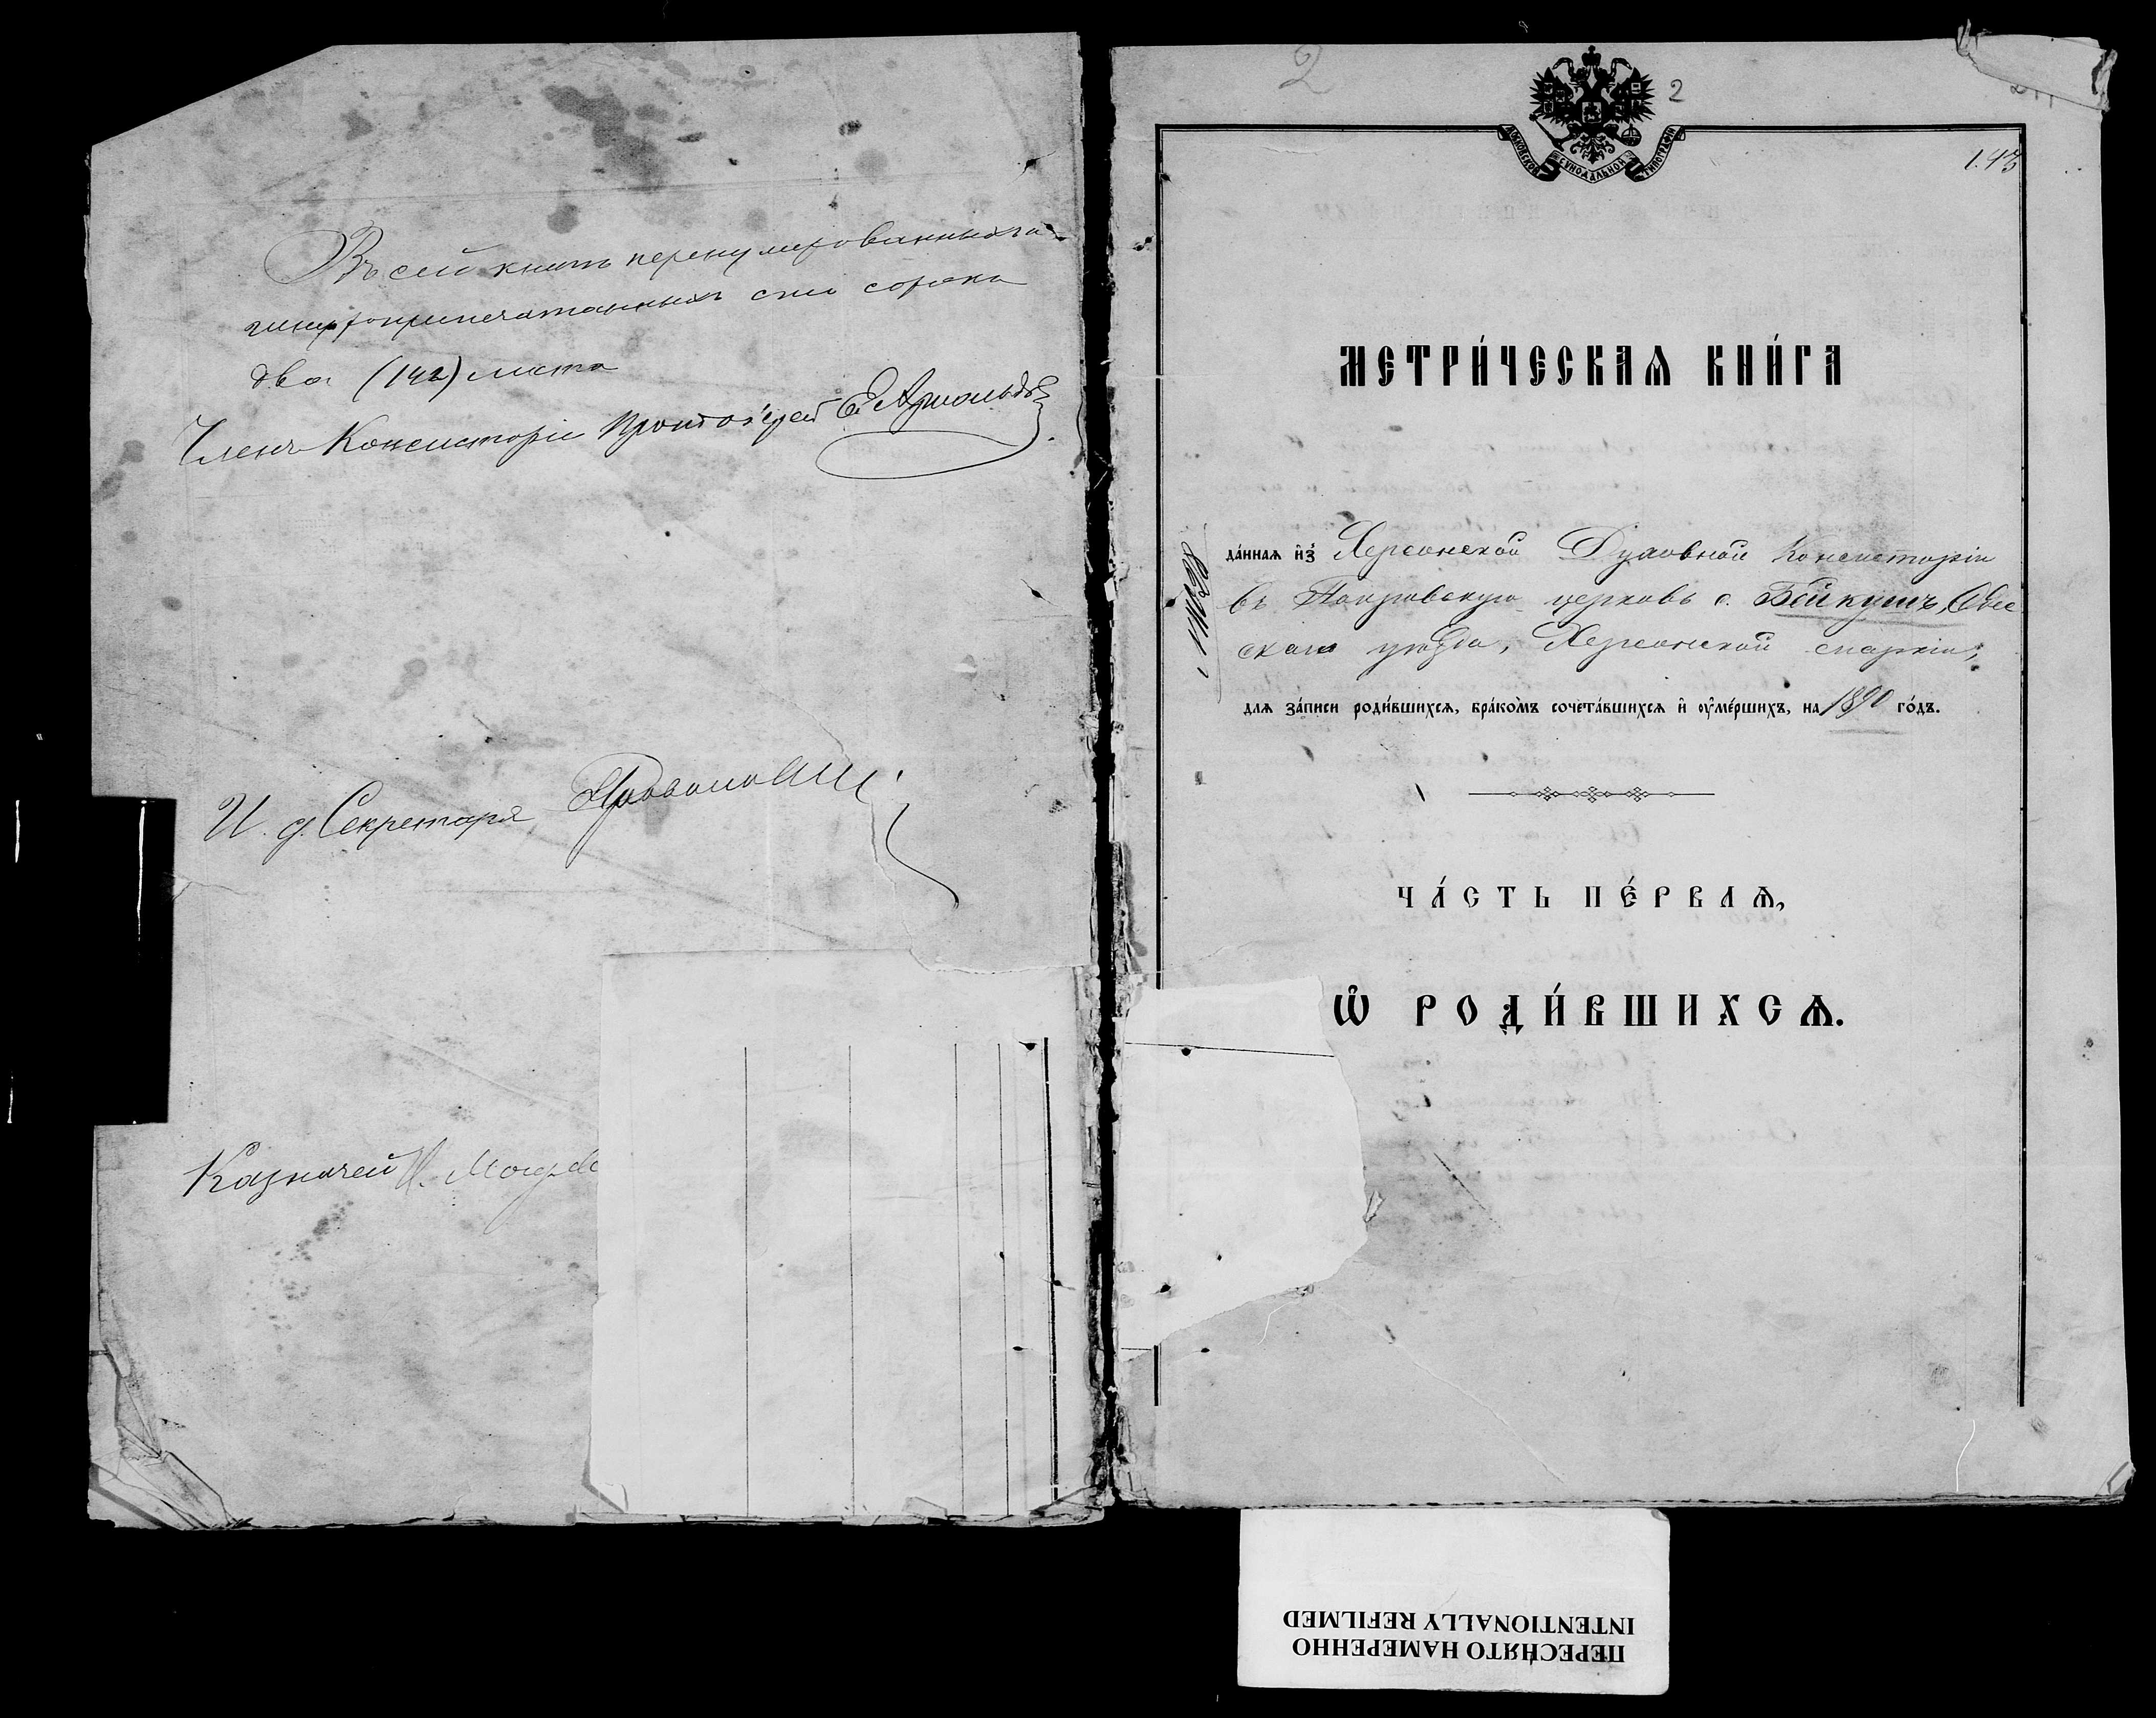 Въ сей книгѣ перенумерованныхъ и
шнуроприпечатанныхъ сто сорокъ
два (142) листа
Членъ Консисторіи Протоіерей
И. д. Секретаря
Казначей
2
2
МОСКОВСКОЙ СѴНОДАЛЬНОЙ ТИПОГРАФІИ
143
МЕТРИ́ЧЕСКАѦ КНИ́ГА
да́ннаѧ и҆з̾ Херсонской Духовной Консисторіи
въ Покровскую церковь с. Бейкушъ, Одес
скаго уѣзда, Херсонской епархіи,
длѧ за́писи роди́вшихсѧ, бра́комъ сочета́вшихсѧ и҆ ᲂу҆ме́ршихъ, на 1890 го́дъ.
ЧА́СТЬ ПЕ́РВАѦ,
Ѡ҆ РОДИ́ВШИХСѦ.
ПЕРЕСНЯТО НАМЕРЕННО
INTENTIONALLY REFILMED